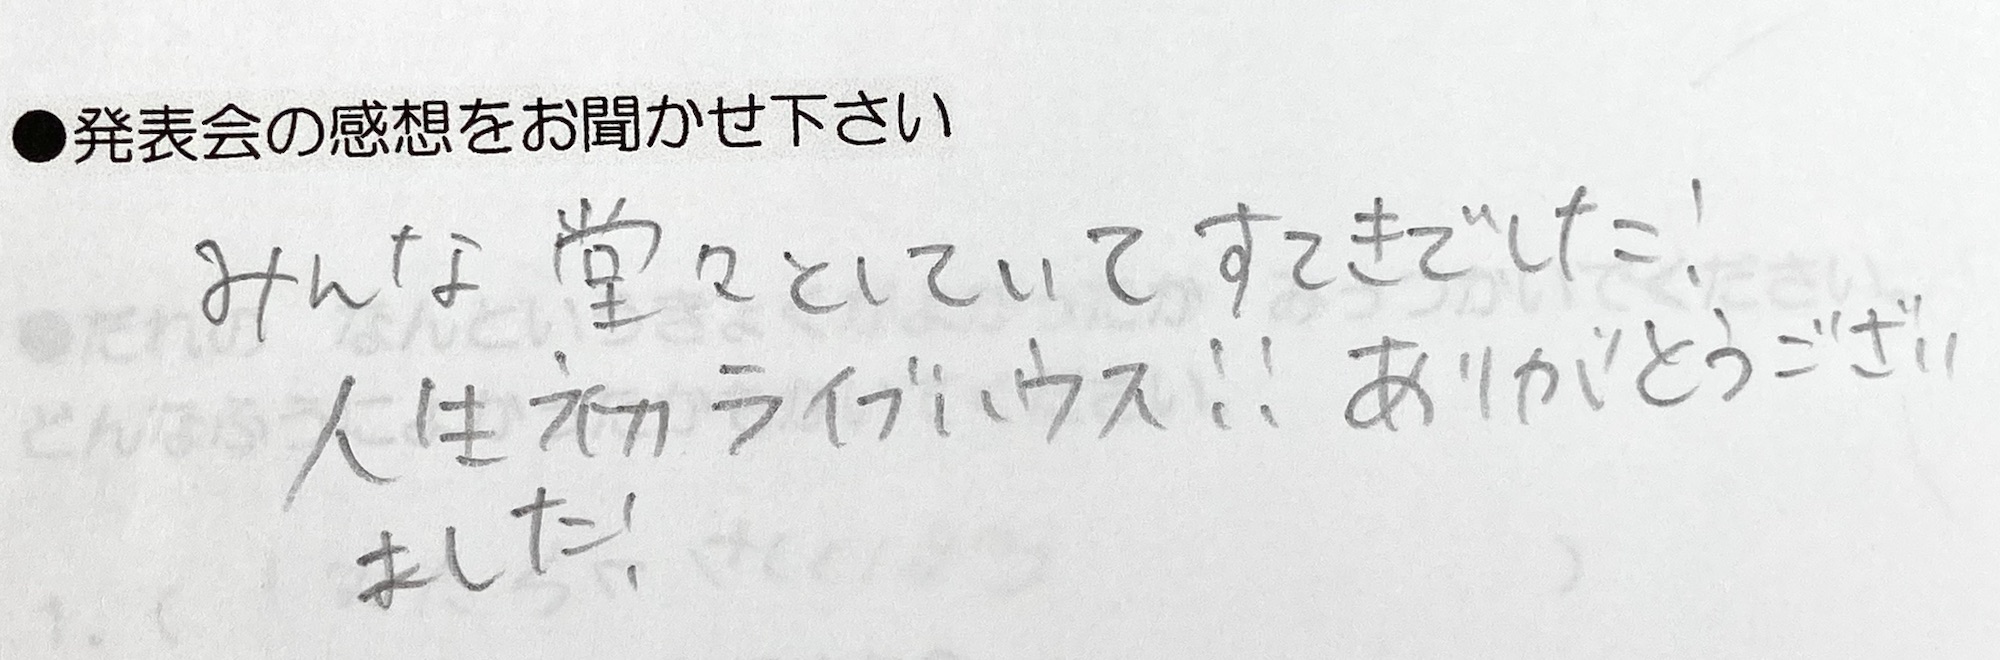 ●発表会の感想をお聞かせ下さい
みんな堂々としていてすてきでした!
人生初ライブハウス!! ありがとうござい
ました!